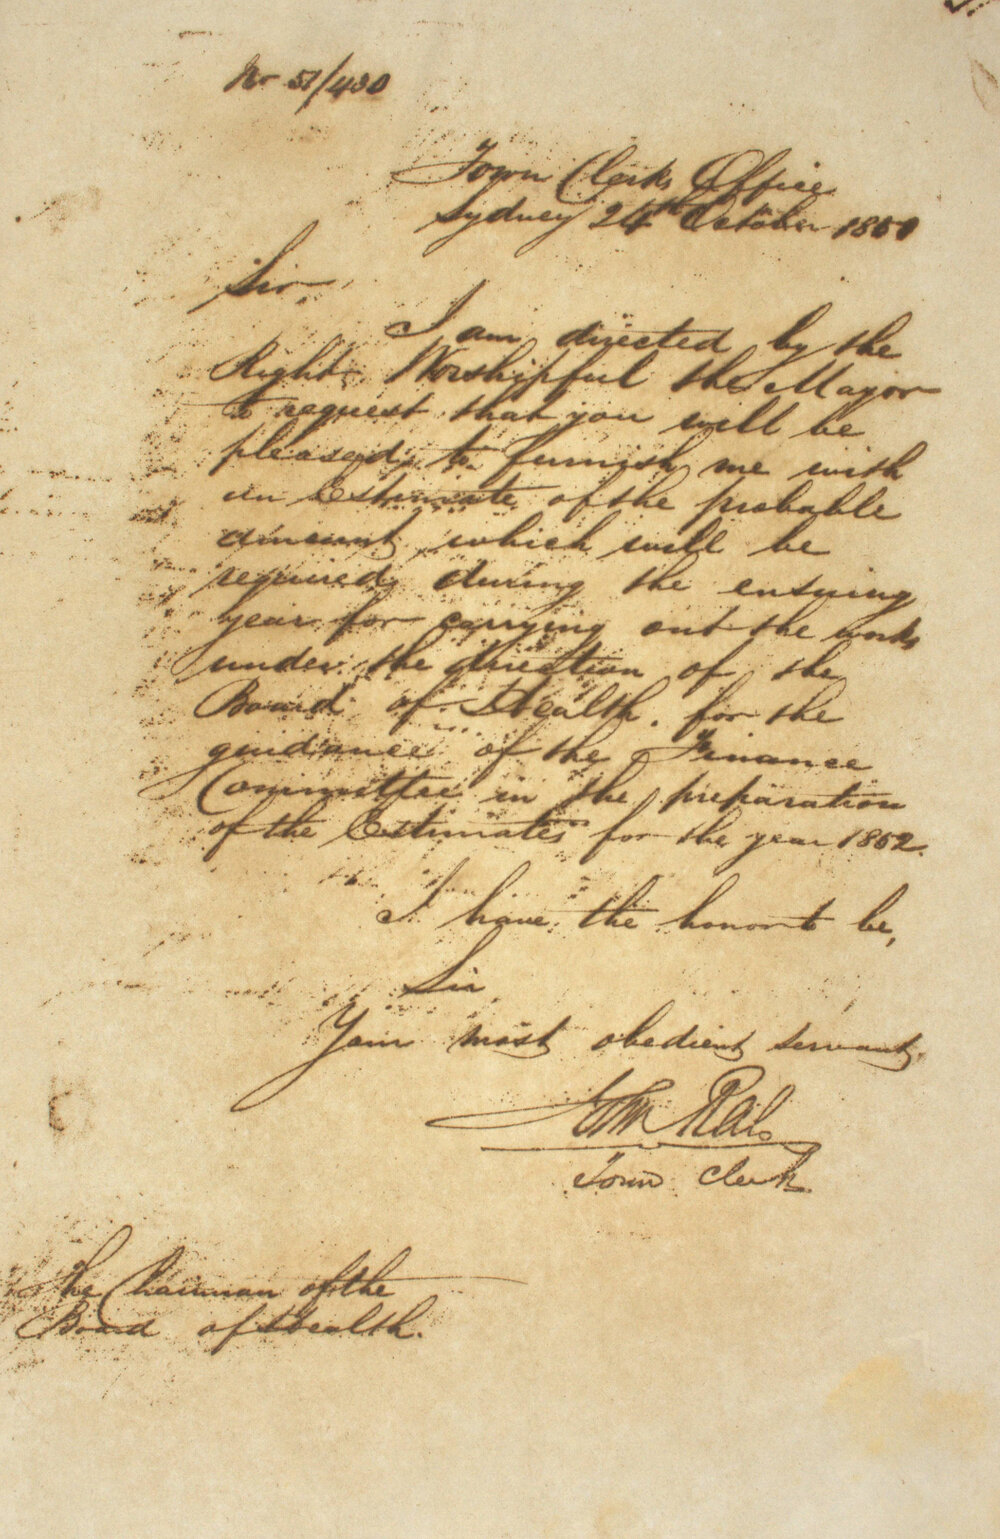 No 51/430
Town Clerks Office
Sydney 24th October 1851
Sir,
I am directed by the
Right Worshipful the Mayor
to request that you will be
pleased to furnish me with
an Estimate of the probable
amount which will be
required during the ensuing
year for carrying out the works
under the direction of the
Board of Health. for the
guidance of the Finance
Committee in the preparation
of the Estimates for the year 1852.
I have the honor to be,
Sir
Your most obedient servant,
John Rae
Town Clerk
The Chairman of the
Board of Health.